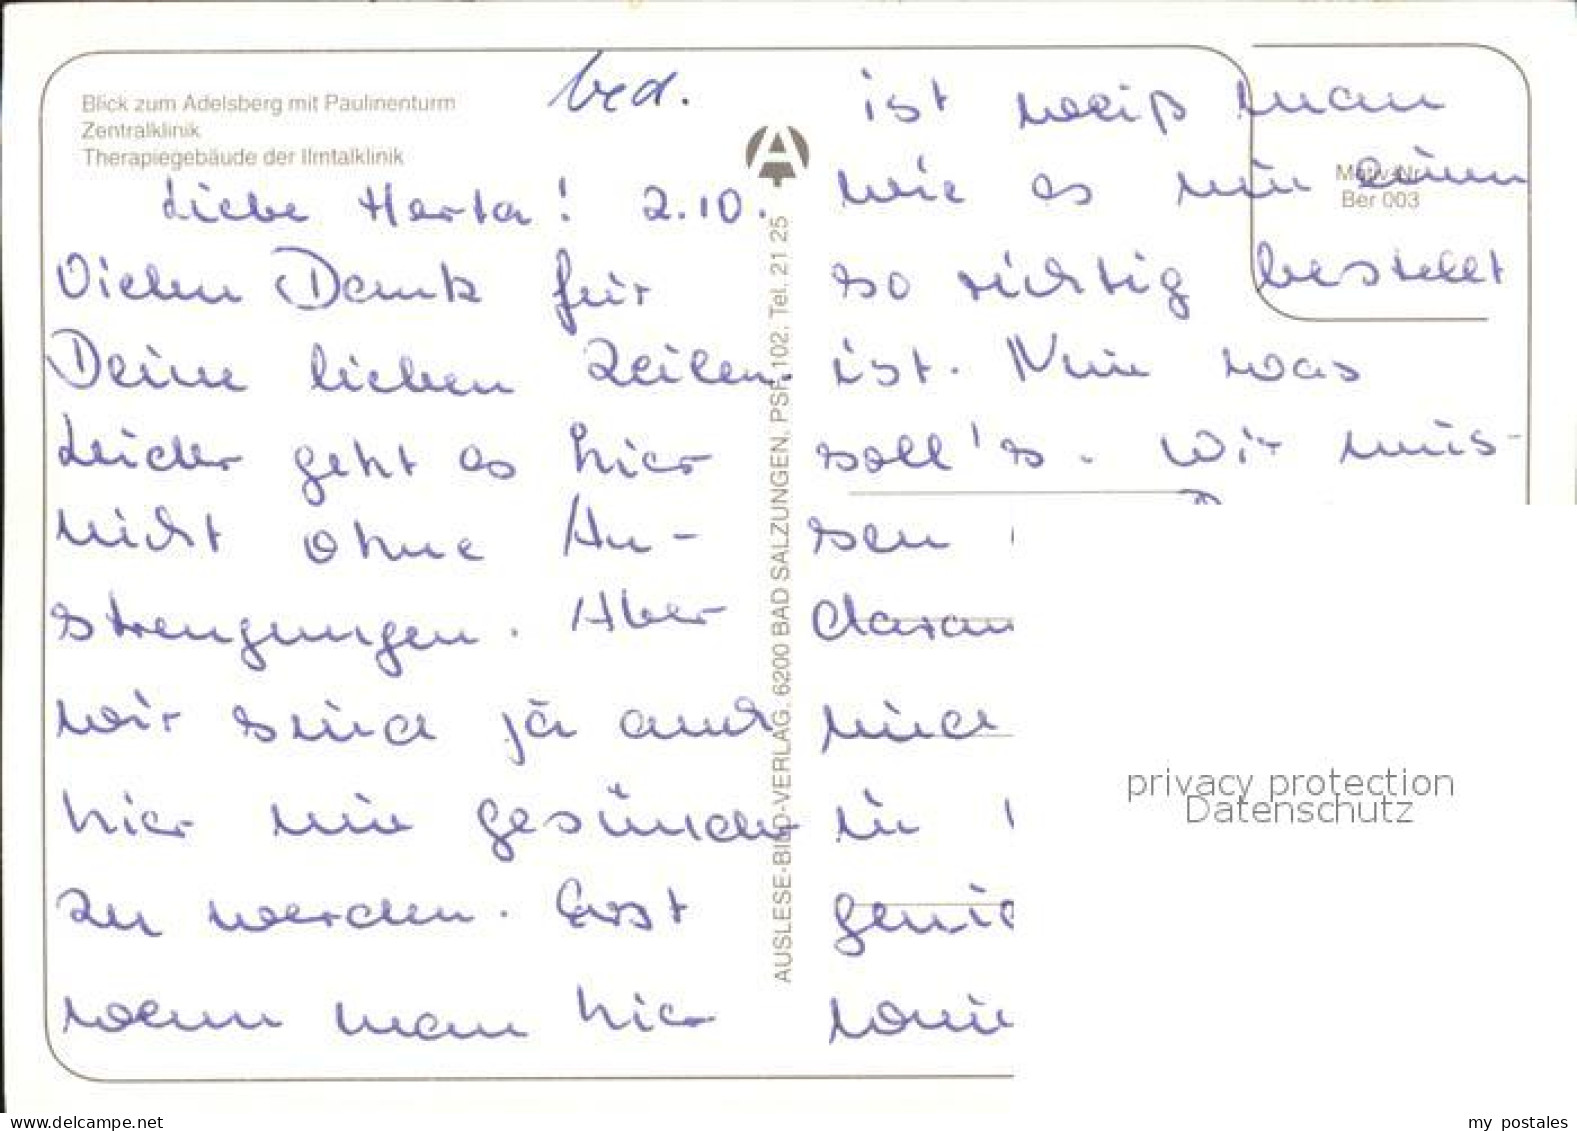 Blick zum Adelsberg mit Paulinenturm
Zentralklinik
Therapiegebäude der Ilmtalklinik
Motiv-Nr.
Ber 003
AUSLESE-BILD-VERLAG, 6200 BAD SALZUNGEN, PSF 102, Tel. 21 25
Liebe Herta! 2.10.
Vielen Dank für
Deine lieben Zeilen.
Leider geht es hier
nicht ohne An-
strengungen. Aber
wir sind ja auch
hier um gesünder
zu werden. Erst
wenn man hier
ist weiß man
wie es um einen
so richtig bestellt
ist. Nun was
soll's. Wir müs-
sen
daran
und
in
genie
privacy protection
Datenschutz
www.delcampe.net
my postales